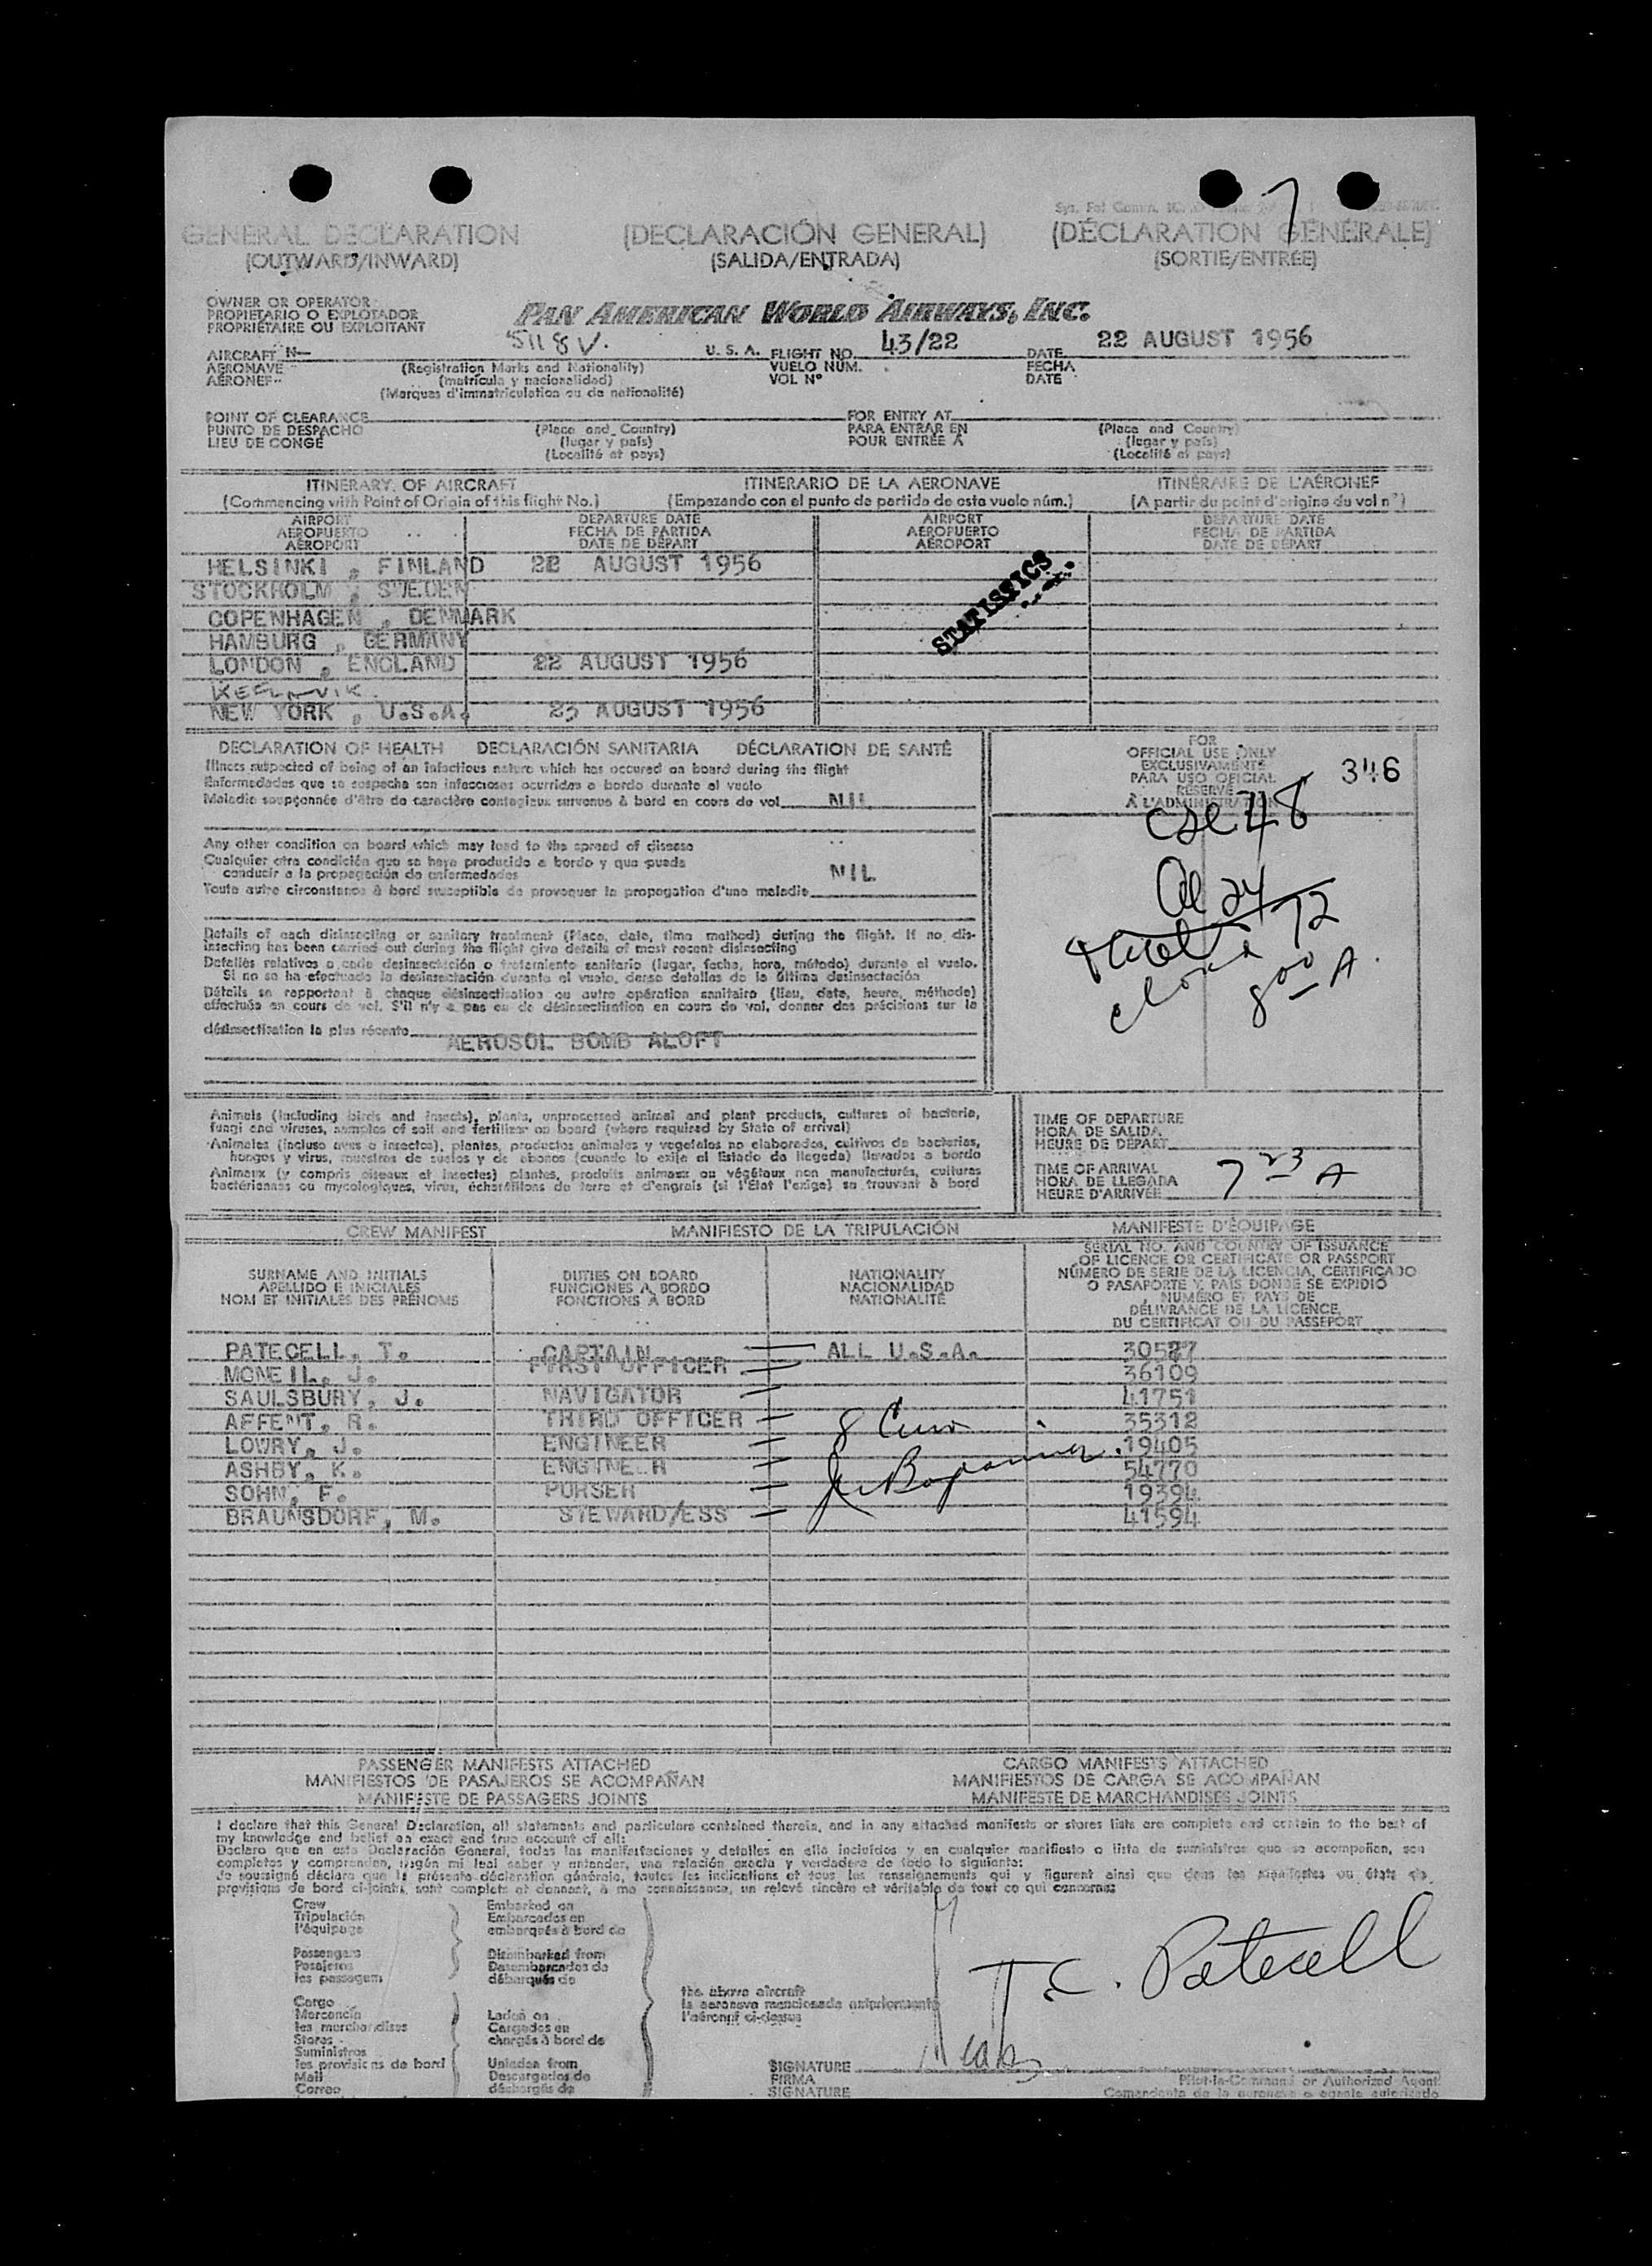 GENERAL DECLARATION (DECLARACIÓN GENERAL) (DÉCLARATION GÉNÉRALE)
(OUTWARD/INWARD) (SALIDA/ENTRADA) (SORTIE/ENTRÉE)
OWNER OR OPERATOR
PROPIETARIO O EXPLOTADOR
PROPRIÉTAIRE OU EXPLOITANT
PAN AMERICAN WORLD AIRWAYS, INC.
AIRCRAFT N— 5118V. U. S. A. FLIGHT NO. 43/22 DATE 22 AUGUST 1956
AERONAVE (Registration Marks and Nationality) VUELO NÚM. FECHA
AÉRONEF (matrícula y nacionalidad) VOL Nº DATE
(Marques d'immatriculation ou de nationalité)
POINT OF CLEARANCE FOR ENTRY AT
PUNTO DE DESPACHO (Place and Country) PARA ENTRAR EN (Place and Country)
LIEU DE CONGÉ (lugar y país) POUR ENTRÉE A (lugar y país)
(Localité et pays) (Localité et pays)
ITINERARY OF AIRCRAFT ITINERARIO DE LA AERONAVE ITINÉRAIRE DE L'AÉRONEF
(Commencing with Point of Origin of this flight No.) (Empezando con el punto de partida de este vuelo núm.) (A partir du point d'origine du vol nº)
AIRPORT DEPARTURE DATE AIRPORT DEPARTURE DATE
AEROPUERTO FECHA DE PARTIDA AEROPUERTO FECHA DE PARTIDA
AÉROPORT DATE DE DÉPART AÉROPORT DATE DE DÉPART
HELSINKI, FINLAND 22 AUGUST 1956
STOCKHOLM, SWEDEN
COPENHAGEN, DENMARK
HAMBURG, GERMANY
LONDON, ENGLAND 22 AUGUST 1956
KEFLAVIK
NEW YORK, U.S.A. 23 AUGUST 1956
STATISTICS
DECLARATION OF HEALTH DECLARACIÓN SANITARIA DÉCLARATION DE SANTÉ
Illness suspected of being of an infectious nature which has occured on board during the flight
Enfermedades que se sospecha son infecciosas ocurridas a bordo durante el vuelo
Maladie soupçonnée d'être de caractère contagieux survenue à bord en cours de vol NIL
Any other condition on board which may lead to the spread of disease
Cualquier otra condición que se haya producido a bordo y que pueda
conducir a la propagación de enfermedades NIL
Toute autre circonstance à bord susceptible de provoquer la propagation d'une maladie
Details of each disinsecting or sanitary treatment (Place, date, time method) during the flight. If no dis-
insecting has been carried out during the flight give details of most recent disinsecting
Detalles relativos a cada desinsectación o tratamiento sanitario (lugar, fecha, hora, método) durante el vuelo.
Si no se ha efectuado la desinsectación durante el vuelo, dense detalles de la última desinsectación
Détails se rapportant à chaque désinsectisation ou autre opération sanitaire (lieu, date, heure, méthode)
effectuée en cours de vol. S'il n'y a pas eu de désinsectisation en cours de vol, donner des précisions sur la
désinsectisation la plus récente AEROSOL BOMB ALOFT
FOR
OFFICIAL USE ONLY
EXCLUSIVAMENTE
PARA USO OFICIAL
RÉSERVÉ
À L'ADMINISTRATION
346
48
24
72
8 00 A.
Animals (including birds and insects), plants, unprocessed animal and plant products, cultures of bacteria,
fungi and viruses, samples of soil and fertilizer on board (where required by State of arrival)
Animales (incluso aves e insectos), plantas, productos animales y vegetales no elaborados, cultivos de bacterias,
hongos y virus, muestras de suelos y de abonos (cuando lo exija el Estado de llegada) llevados a bordo
Animaux (y compris oiseaux et insectes) plantes, produits animaux ou végétaux non manufacturés, cultures
bactériennes ou mycologiques, virus, échantillons de terre et d'engrais (si l'État l'exige) se trouvant à bord
TIME OF DEPARTURE
HORA DE SALIDA
HEURE DE DÉPART
TIME OF ARRIVAL
HORA DE LLEGADA
HEURE D'ARRIVÉE 7 23 A
CREW MANIFEST MANIFIESTO DE LA TRIPULACIÓN MANIFESTE D'ÉQUIPAGE
SURNAME AND INITIALS
APELLIDO E INICIALES
NOM ET INITIALES DES PRÉNOMS
DUTIES ON BOARD
FUNCIONES A BORDO
FONCTIONS À BORD
NATIONALITY
NACIONALIDAD
NATIONALITÉ
SERIAL NO. AND COUNTRY OF ISSUANCE
OF LICENCE OR CERTIFICATE OR PASSPORT
NÚMERO DE SERIE DE LA LICENCIA, CERTIFICADO
O PASAPORTE Y PAÍS DONDE SE EXPIDIÓ
NUMÉRO ET PAYS DE
DÉLIVRANCE DE LA LICENCE,
DU CERTIFICAT OU DU PASSEPORT
PATECELL, T. CAPTAIN ALL U.S.A. 30527
MCNEIL, J. FIRST OFFICER 36109
SAULSBURY, J. NAVIGATOR 41751
AFFENT, R. THIRD OFFICER 35312
LOWRY, J. ENGINEER 19405
ASHBY, K. ENGINEER 54770
SOHN, F. PURSER 19394
BRAUNSDORF, M. STEWARD/ESS 41594
8 Crew
PASSENGER MANIFESTS ATTACHED CARGO MANIFESTS ATTACHED
MANIFIESTOS DE PASAJEROS SE ACOMPAÑAN MANIFIESTOS DE CARGA SE ACOMPAÑAN
MANIFESTE DE PASSAGERS JOINTS MANIFESTE DE MARCHANDISES JOINTS
I declare that this General Declaration, all statements and particulars contained therein, and in any attached manifests or stores lists are complete and certain to the best of
my knowledge and belief an exact and true account of all:
Declaro que en esta Declaración General, todas las manifestaciones y detalles en ella incluídos y en cualquier manifiesto o lista de suministros que se acompañen, son
completos y comprenden, según mi leal saber y entender, una relación exacta y verdadera de todo lo siguiente:
Je soussigné déclare que la présente déclaration générale, toutes les indications et tous les renseignements qui y figurent ainsi que dans les manifestes ou états de
provisions de bord ci-joints, sont complets et donnent, à ma connaissance, un relevé sincère et véritable de tout ce qui concerne:
Crew Embarked on
Tripulación Embarcados en
l'équipage embarqués à bord de
Passengers Disembarked from
Pasajeros Desembarcados de
les passagers débarqués de
Cargo
Mercancía Laden on
les marchandises Cargados en
Stores chargés à bord de
Suministros
les provisions de bord Unladen from
Mail Descargados de
Correo déchargés de
the above aircraft
la aeronave mencionada anteriormente
l'aéronef ci-dessus
T.C. Patecell
SIGNATURE
FIRMA Pilot-in-Command or Authorized Agent
SIGNATURE Comandante de la aeronave o agente autorizado